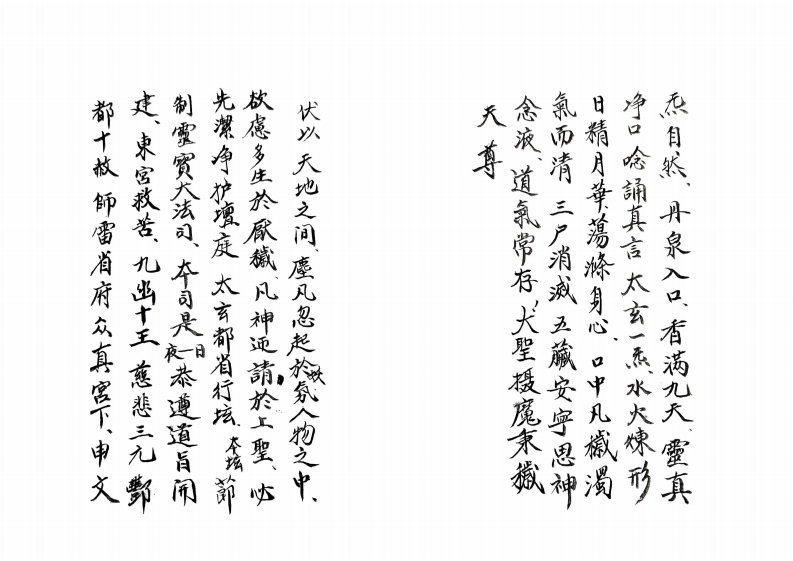 炁自然、丹泉入口、香滿九天、靈真
净口唸誦真言太玄一炁、水火煉形
日精月華、蕩滌身心、口中凡穢濁
氣而清三尸消滅五臟安寧思神
念液、道氣常存、大聖摄魔秉穢
天尊
伏以天地之间、塵凡忽起於氛妖人物之中、
欲慮多生於厭穢、凡神迊請於上聖、必
先潔净护壇庭太玄都省行坛、本坛莭
制靈寳大法司、本司是一日夜恭遵道旨開
建、東宮救苦、九幽十王慈悲三元酆
都十赦師雷省府众真宮下、申文